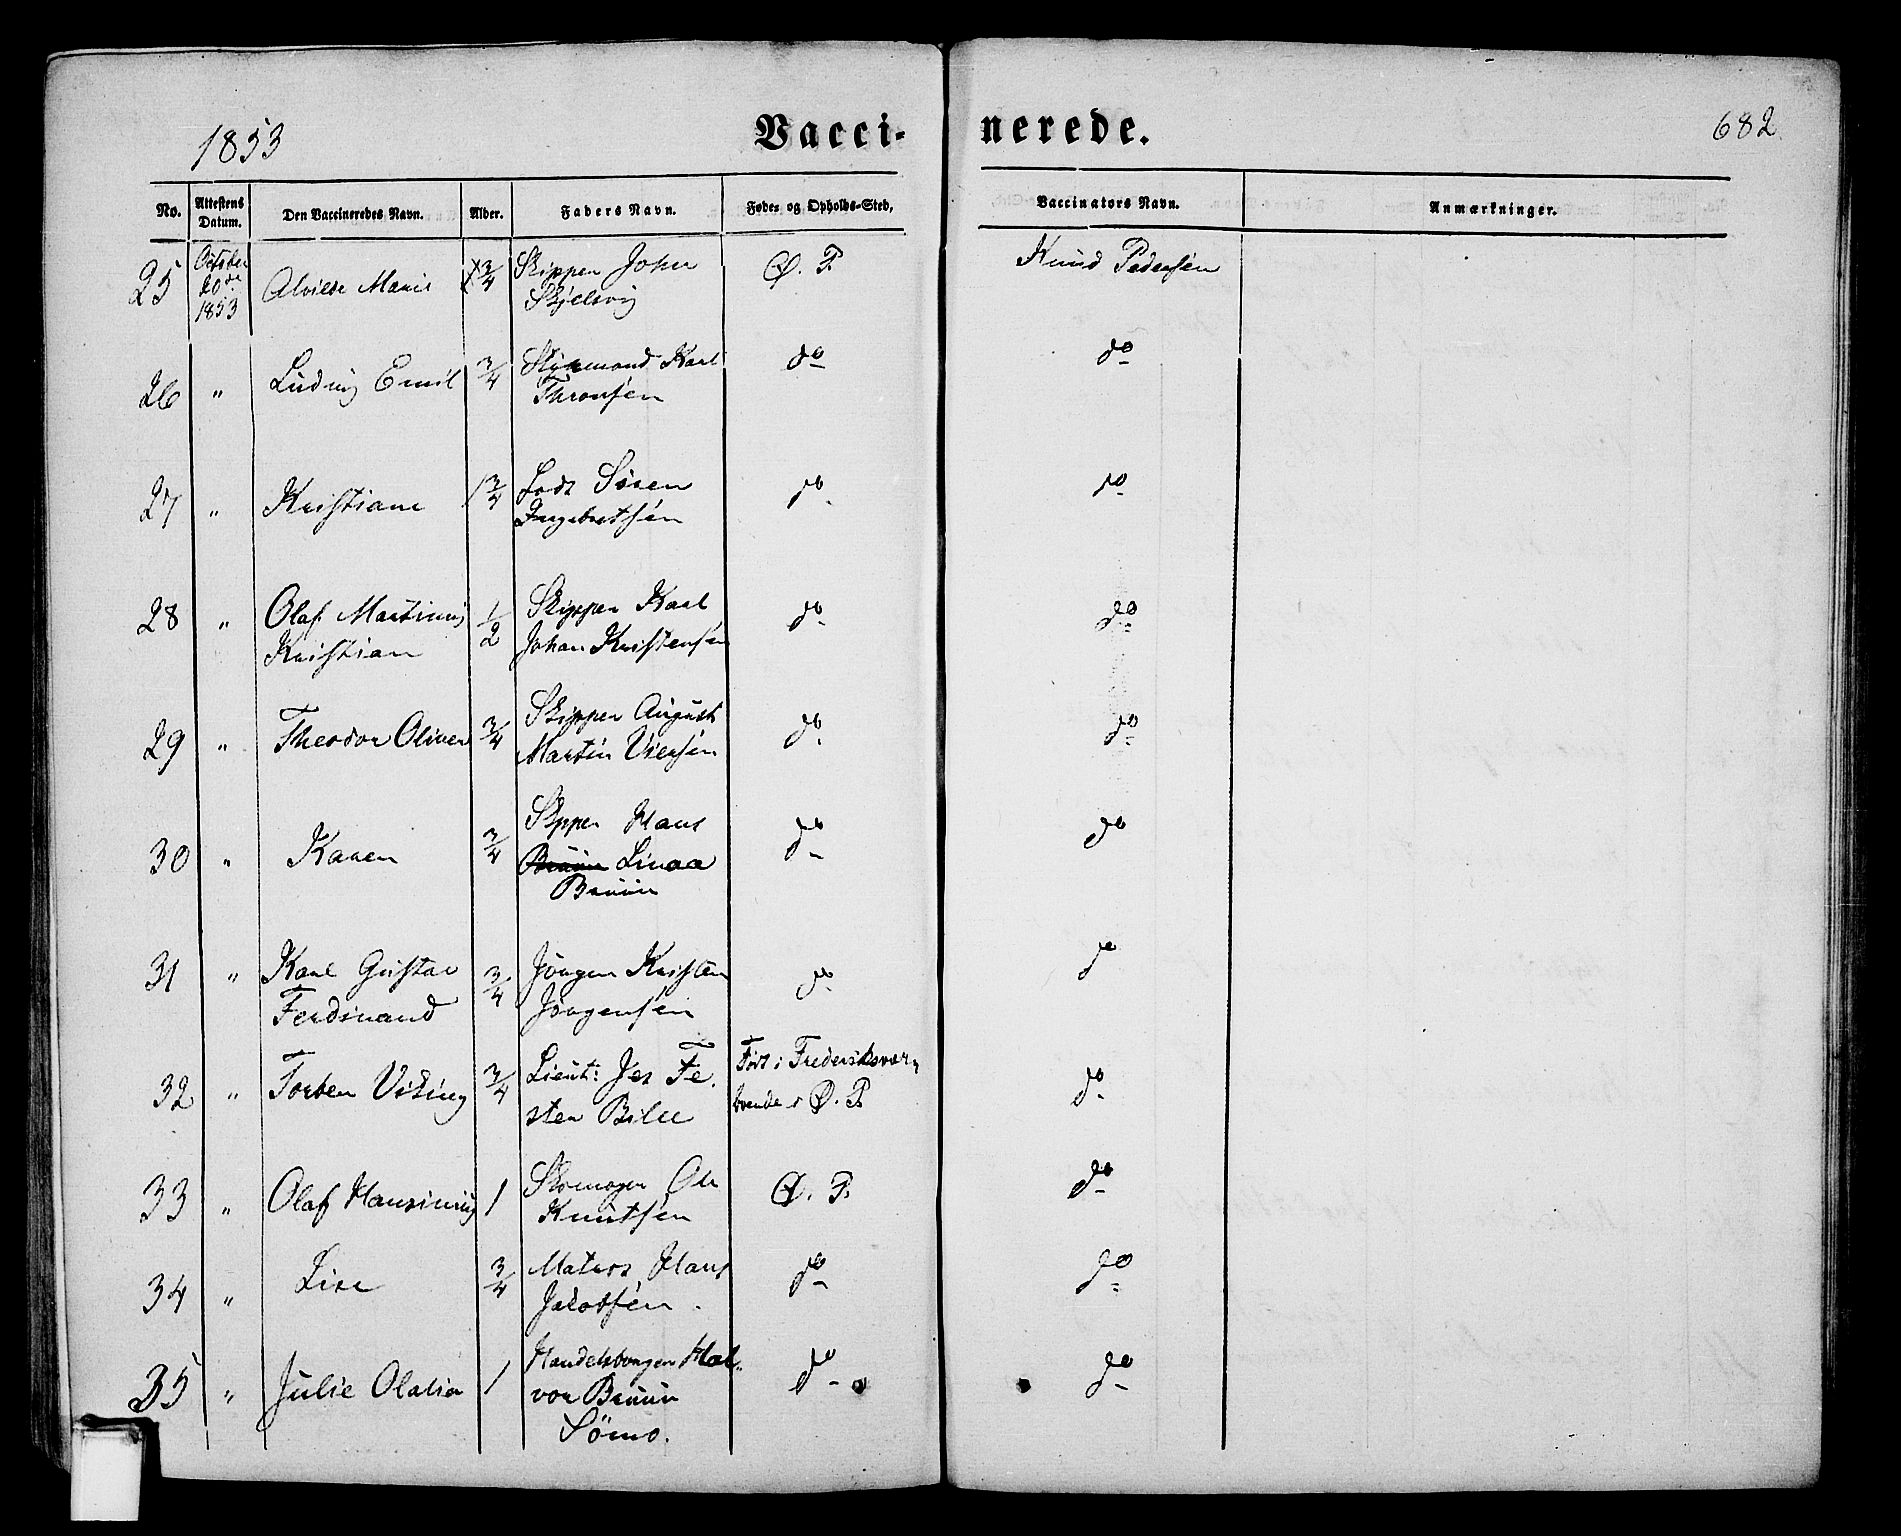 1853
Vacci-nerede.
682
No.
Attestens Datum.
Den Vaccineredes Navn.
Alder.
Faders Navn.
Føde- og Opholds-Sted,
Vaccinators Navn.
Anmærkninger.
25 October 20de 1853 Alvilde Marie 3/4 Skipper John Ø. P. Knud Pedersen
Skjelsvig
26 " Ludvig Emil 3/4 Styrmand Karl do do
Thronsen
27 " Kristiane 1 3/4 Lods Sören do do
Ingebretsen
28 " Olaf Martinus 1/2 Skipper Karl do do
Kristian Johan Kristensen
29 " Theodor Oliver 3/4 Skipper August do do
Martin
30 " Karen 3/4 Skipper Hans do do
Bruun Linaa
Bruun
31 " Karl Gustav 3/4 Jörgen Kristen do do
Ferdinand Jörgensen
32 " Torben Viking 3/4 Lieut: Jes Te- Födt i Frederiksværn do
sten Bille boende i Ø. P.
33 " Olaf Hansinius 1 Skomager Ole Ø. P. do
Knutsen
34 " Lise 3/4 Matros Hans do do
Jacobsen.
35 " Julie Olalia 1 Handelsborger Hal- do do
vor Bruun
Sömo.